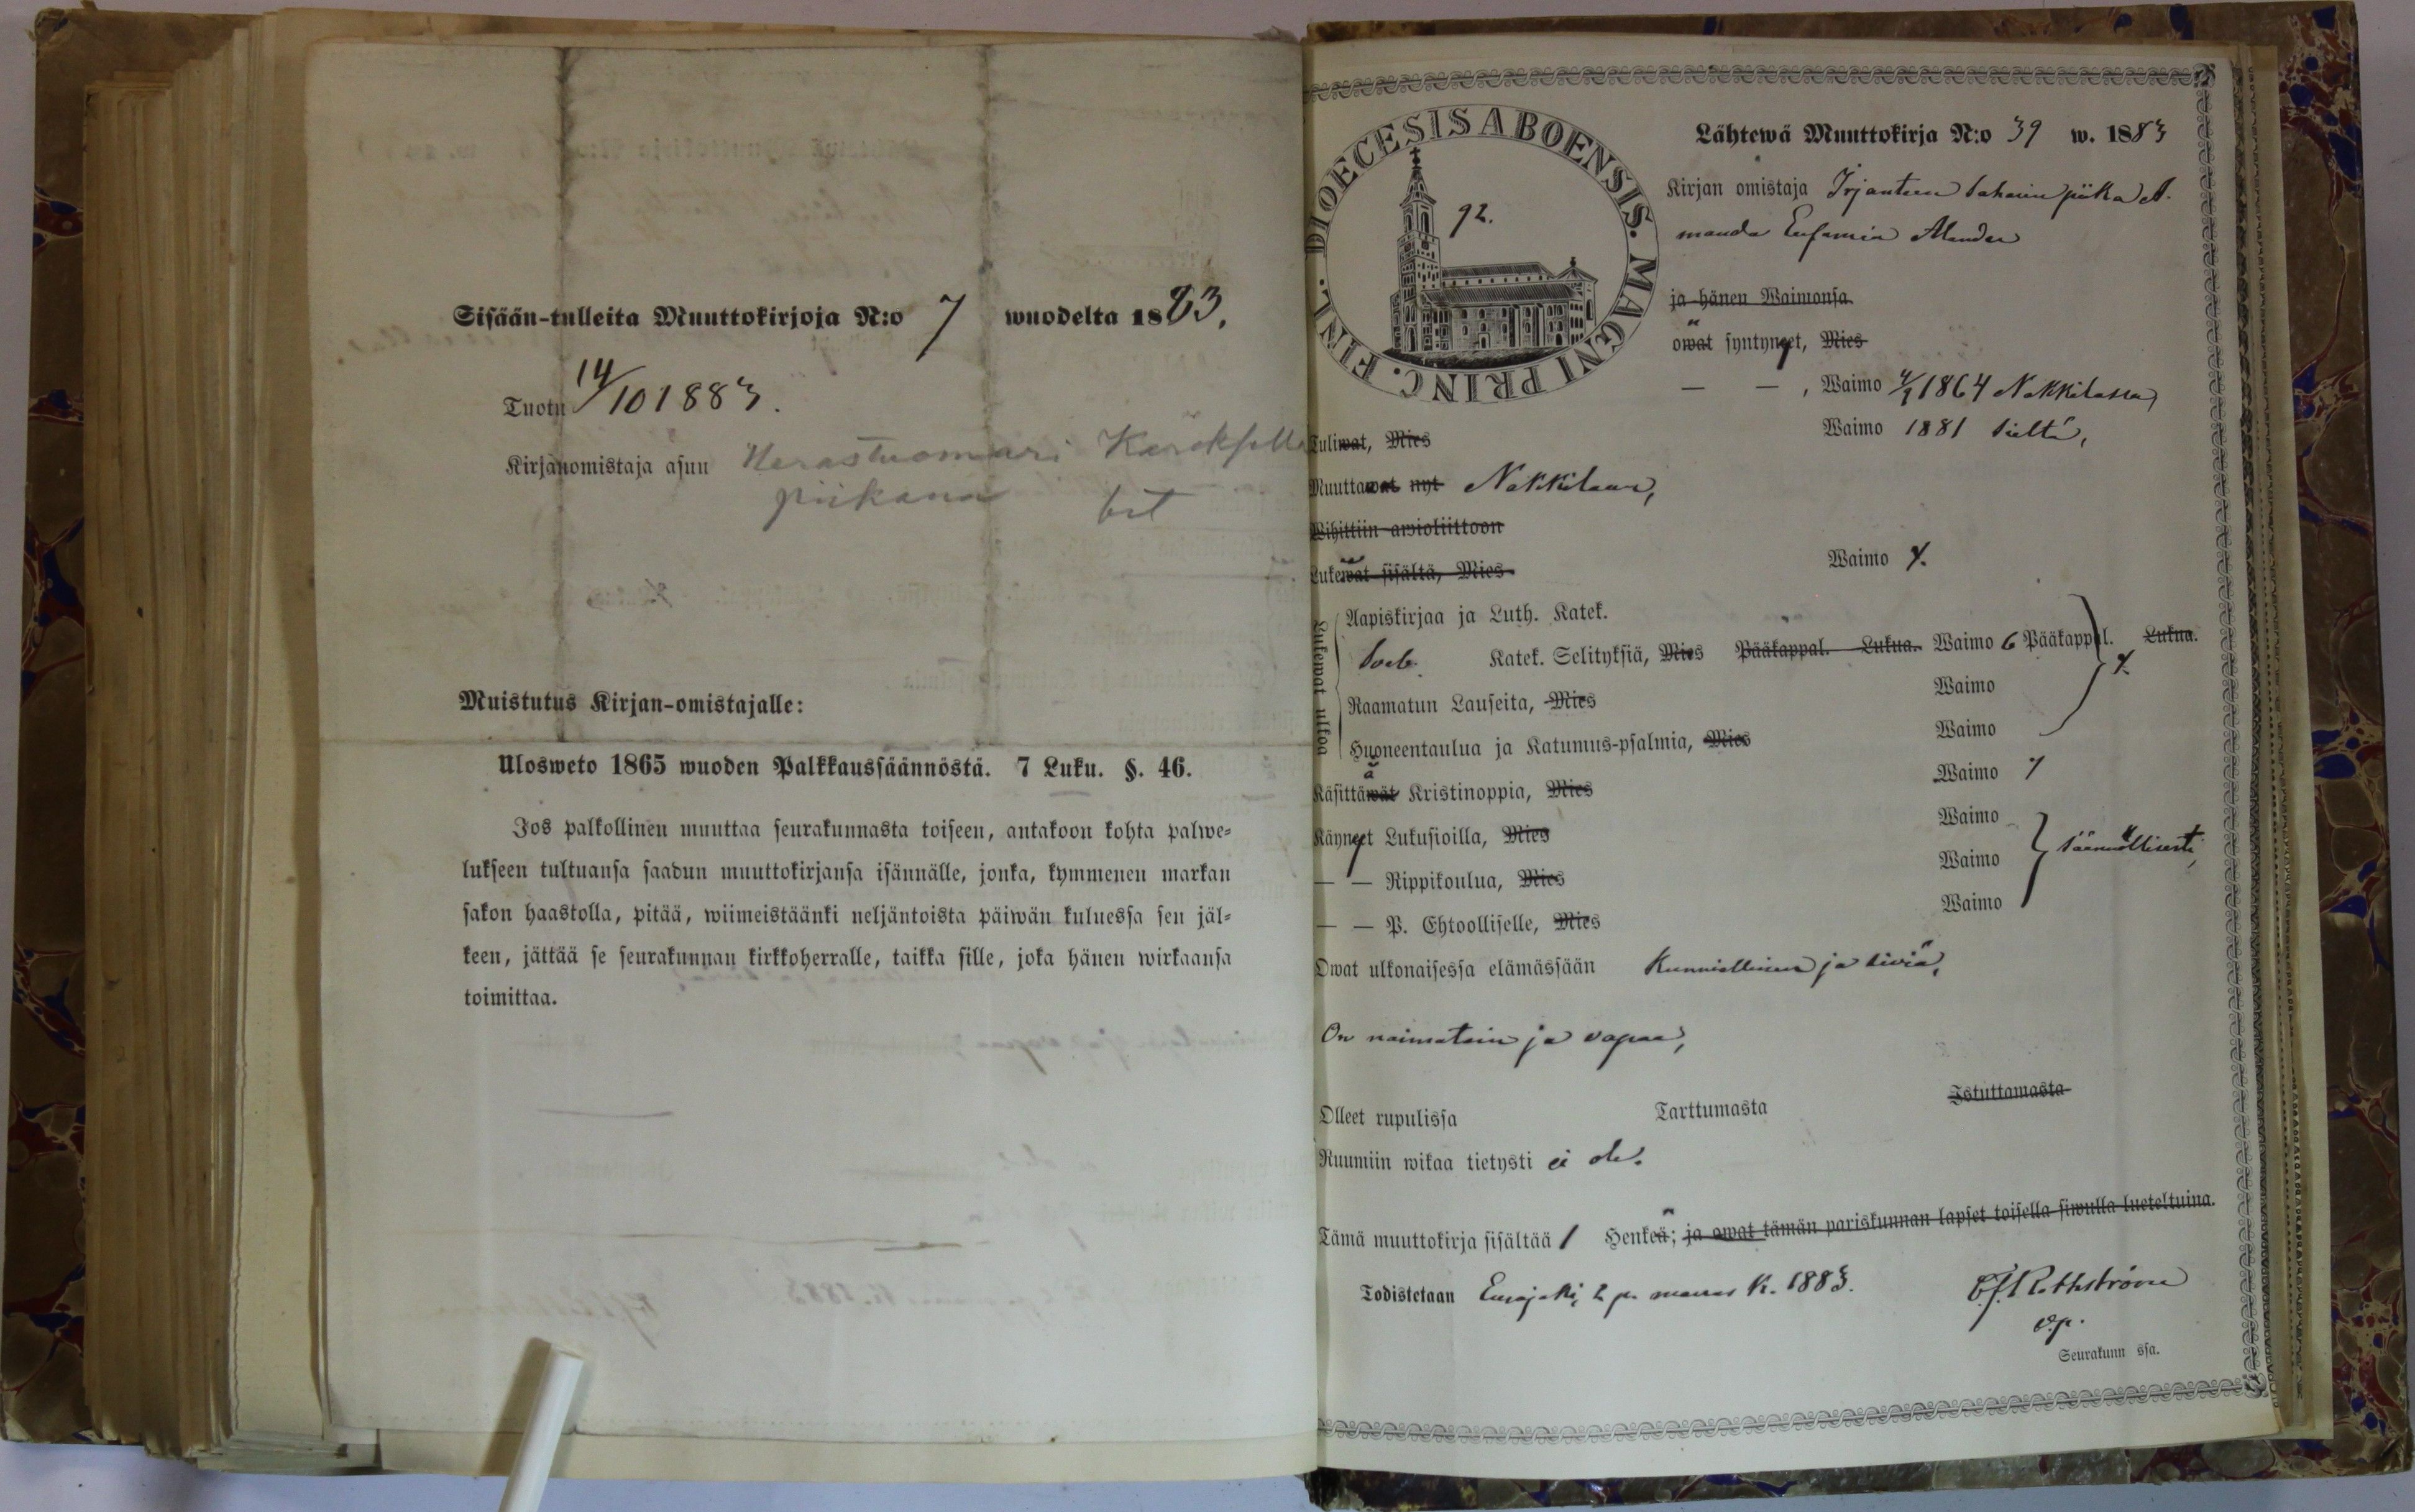 Sisään-tulleita Muuttokirjoja N:o 7 wuodelta 1883.
Tuotu 14/10 1883.
Kirjanomistaja asuu Herastuomari
piikana
Muistutus Kirjan-omistajalle:
Ulosweto 1865 wuoden Palkkaussäännöstä. 7 Luku. §. 46.
Jos palkollinen muuttaa seurakunnasta toiseen, antakoon kohta palwe=
lukseen tultuansa saadun muuttokirjansa isännälle, jonka, kymmenen markan
sakon haastolla, pitää, wiimeistäänki neljäntoista päiwän kuluessa sen jäl=
keen, jättää se seurakunnan kirkkoherralle, taikka sille, joka hänen wirkaansa
toimittaa.
DIOECESIS ABOENSIS. MAGNI PRINC. FINL.
92.
Lähtewä Muuttokirja N:o 39 w. 1883
Kirjan omistaja Irjanteen Sahanin piika A.
manda Eufamia
ja hänen Waimonsa
owat syntyneet, Mies
— — , Waimo 1864 Nakkilassa,
Tuliwat, Mies Waimo 1881 sieltä,
Muuttawat nyt Nakkilaan,
Wihittiin awioliittoon
Lukewat sisältä, Mies Waimo
Lukewat ulkoa
Aapiskirjaa ja Luth. Katek.
Katek. Selityksiä, Mies Pääkappal. Lukua. Waimo 6 Pääkappal. Lukua.
Raamatun Lauseita, Mies Waimo
Huoneentaulua ja Katumus-psalmia, Mies Waimo
Käsittäwät Kristinoppia, Mies Waimo
Käyneet Lukusioilla, Mies Waimo
— — Rippikoulua, Mies Waimo säännöllisesti,
— — P. Ehtoolliselle, Mies Waimo
Owat ulkonaisessa elämässään Kunniallinen ja siviä,
On naimatoin ja vapaa,
Olleet rupulissa Tarttumasta Istuttamasta
Ruumiin wikaa tietysti ei ole.
Tämä muuttokirja sisältää 1 Henkeä; ja owat tämän pariskunnan lapset toisella siwulla lueteltuina.
Todistetaan Eurajoki, 2 p. marras k. 1883.
v.p.
Seurakunn ssa.